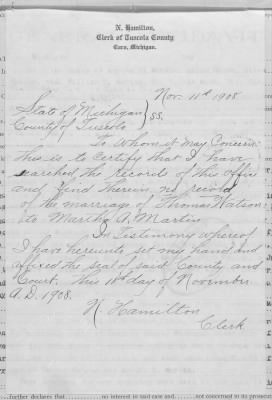 N. Hamilton,
Clerk of Tuscola County
Caro, Michigan.
Nov. 11th 1908
State of Michigan }
County of Tuscola } SS.
To Whom it may Concern:
this is to certify that I have
searched the records of this office
and find therein no record
of the marriage of Thomas Watson
to Martha A. Martin
In Testimony whereof
I have hereunto set my hand and
affixed the seal of said County and
Court. This day of November
A.D. 1908.
N. Hamilton
Clerk
further declares that no interest in said case and not concerned in its